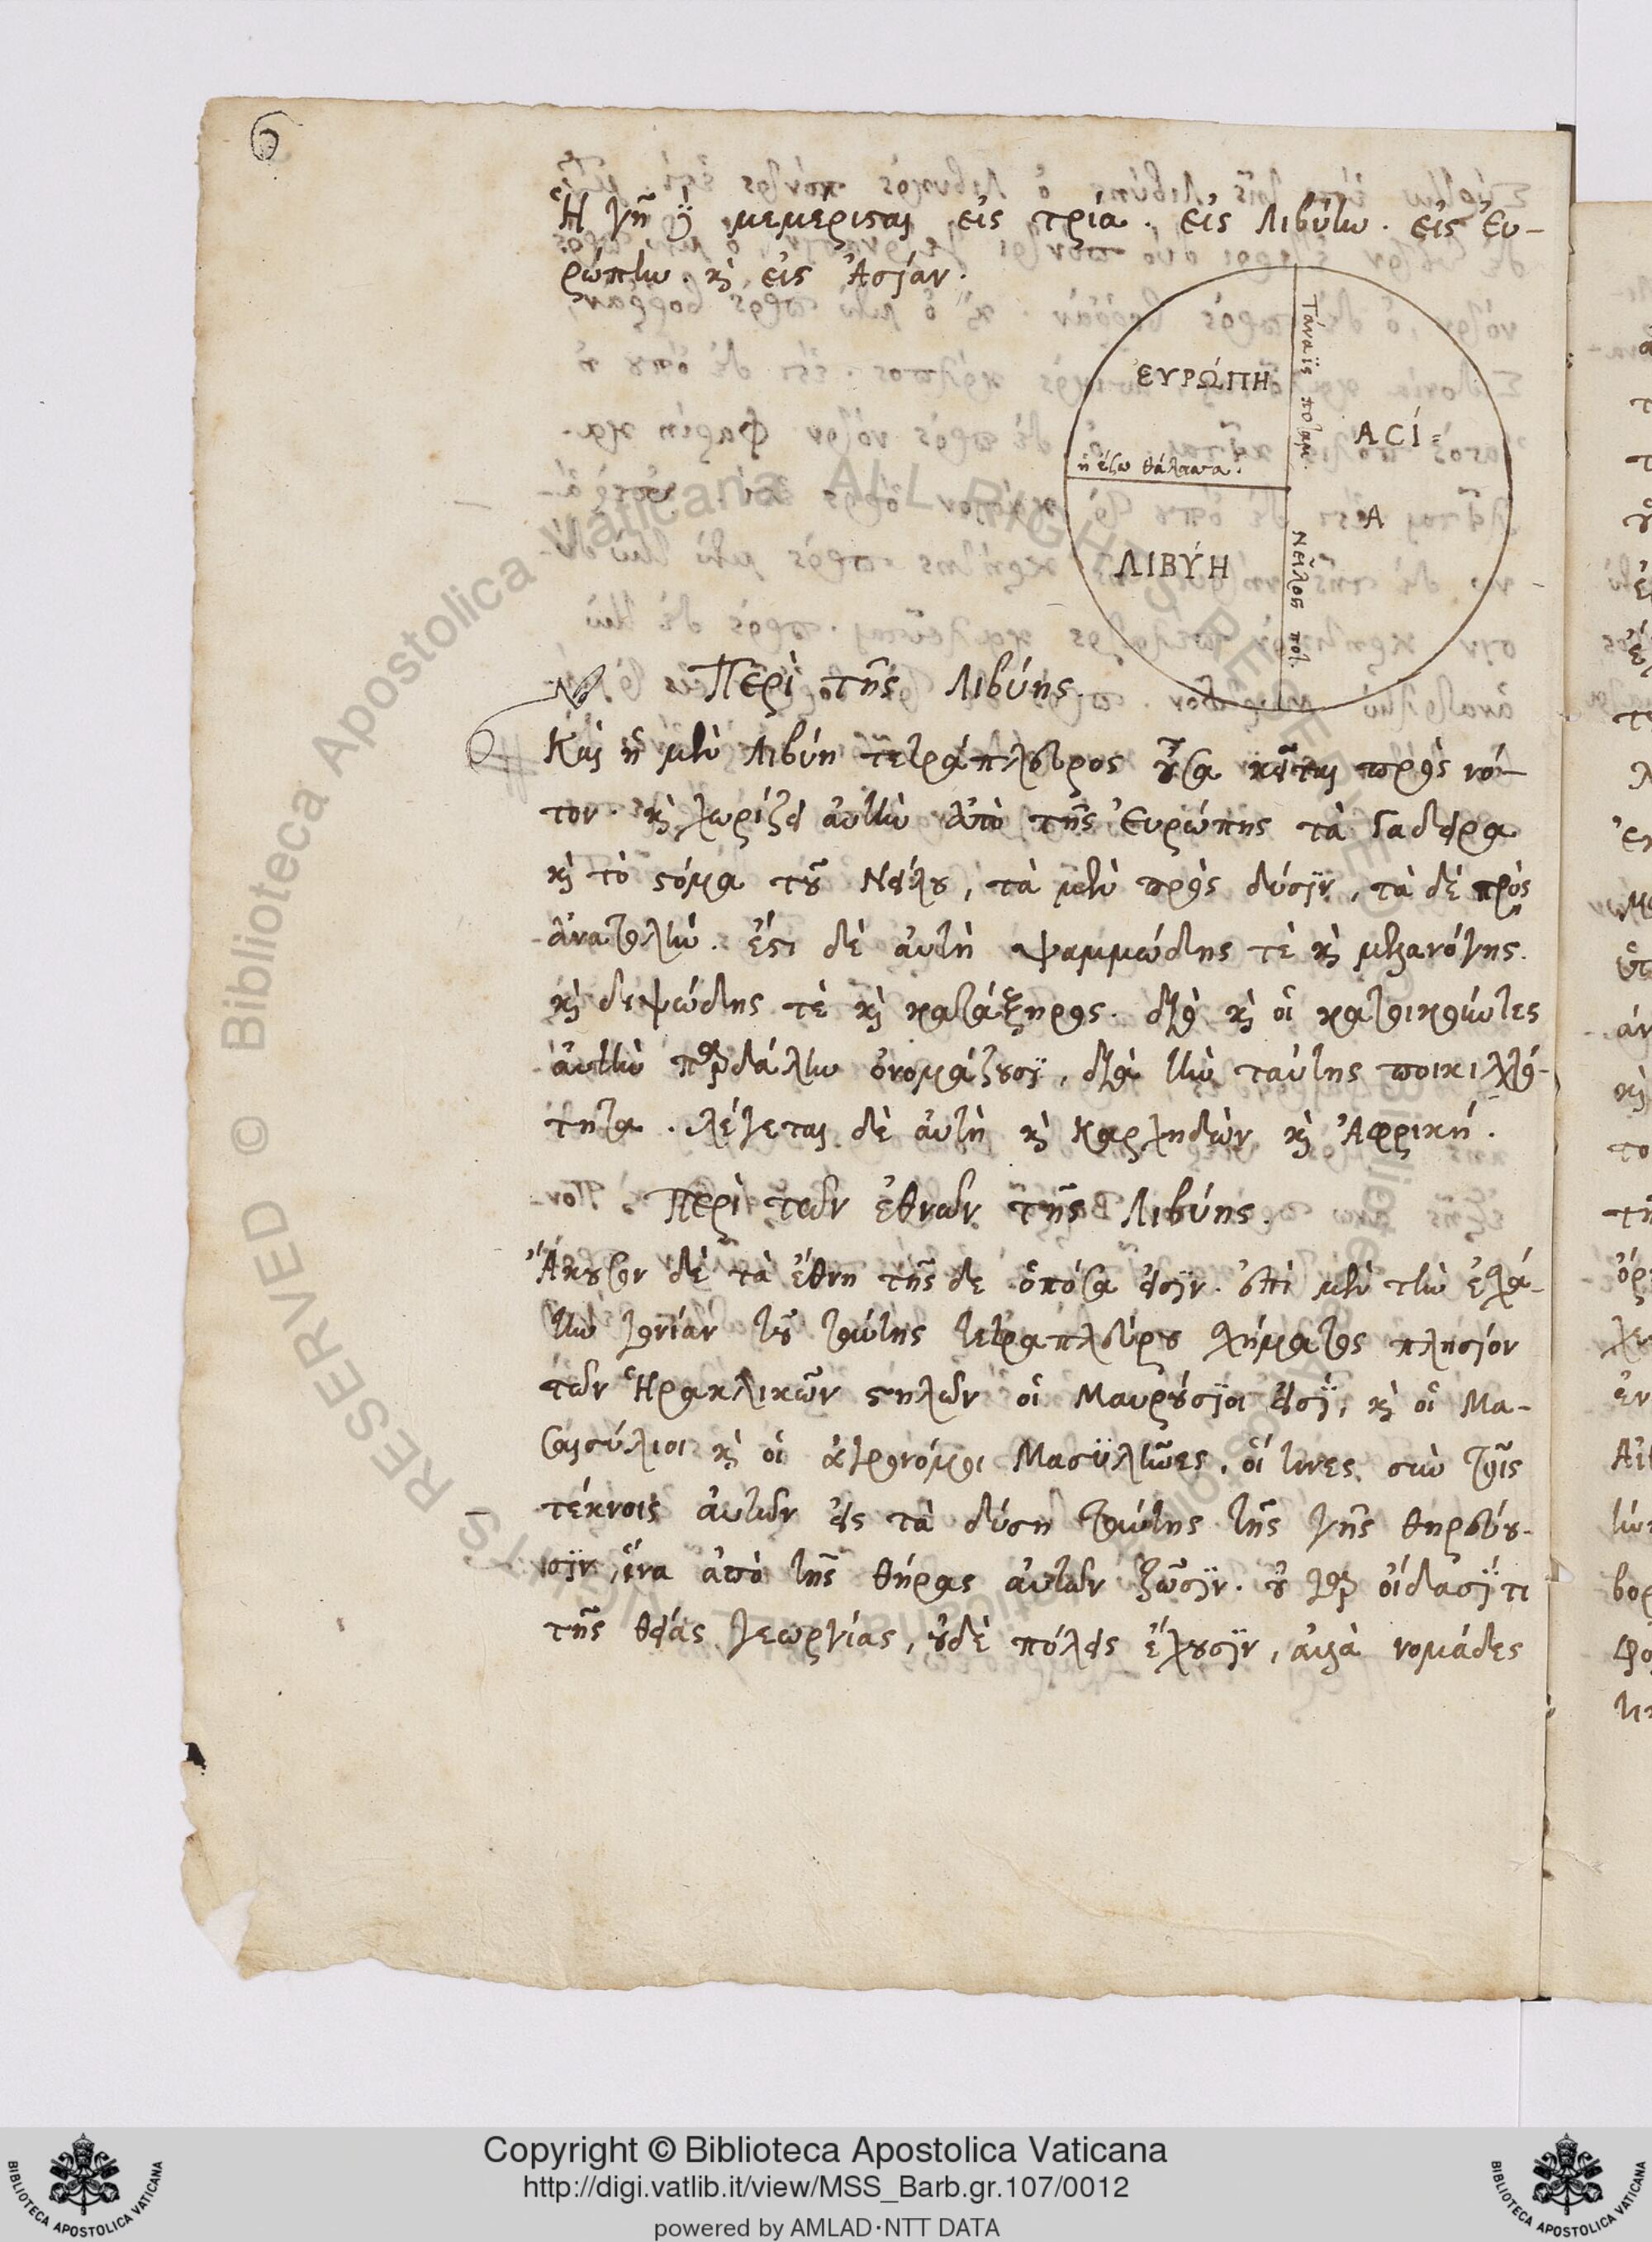 6
Ἡ γῆ ᾗ μεμέρισται εἰς τρία. εἰς Λιβύην. εἰς Εὐ-
ρώπην. καὶ εἰς Ἀσίαν.
ΕΥΡΏΠΗ
Τάναϊς ποταμ.
ΑCΊ=
ἡ ἔξω θάλασσα.
Α
ΛΙΒΎΗ
Νεῖλος ποτ.
Περὶ τῆς Λιβύης.
Καὶ ἡ μὲν Λιβύη τετράπλευρος οὖσα κεῖται πρὸς νό-
τον. καὶ χωρίζει αὐτὴν ἀπὸ τῆς Εὐρώπης τὰ Γάδειρα
καὶ τὸ στόμα τοῦ Νείλου, τὰ μὲν πρὸς δύσιν, τὰ δὲ πρὸς
ἀνατολήν. ἔστι δὲ αὐτὴ ψαμμώδης τὲ καὶ μελανόγης.
καὶ διψώδης τὲ καὶ κατάξηρος. διὸ καὶ οἱ κατοικοῦντες
αὐτὴν παρδάλιν ὀνομάζουσι, διὰ τὴν ταύτης ποικιλλό-
τητα. λέγεται δὲ αὐτὴ καὶ Καρχηδὼν καὶ Ἀφρική.
Περὶ τῶν ἐθνῶν τῆς Λιβύης.
Ἄκουσον δὲ τὰ ἔθνη τῆς δε ὁπόσα εἰσὶν. ἐπὶ μὲν τὴν ἐσχά-
την γωνίαν τοῦ ταύτης τετραπλεύρου σχήματος πλησίον
τῶν Ἡρακλικῶν στηλῶν οἱ Μαυρούσιοι εἰσὶ, καὶ οἱ Μα-
σαισύλιοι καὶ οἱ ἀγρονόμοι Μασυλῆες, οἵ τινες σὺν τοῖς
τέκνοις αὐτῶν εἰς τὰ δύση ταύτης τῆς γῆς θηρεύου-
σιν, ἵνα ἀπὸ τῆς θήρας αὐτῶν ζῶσιν. οὐ γὰρ οἴδασί τι
τῆς θείας γεωργίας, οὐδὲ πόλεις ἔχουσιν, ἀλλὰ νομάδες
Copyright © Biblioteca Apostolica Vaticana
http://digi.vatlib.it/view/MSS_Barb.gr.107/0012
powered by AMLAD·NTT DATA
BIBLIOTECA APOSTOLICA VATICANA
BIBLIOTECA APOSTOLICA VATICANA